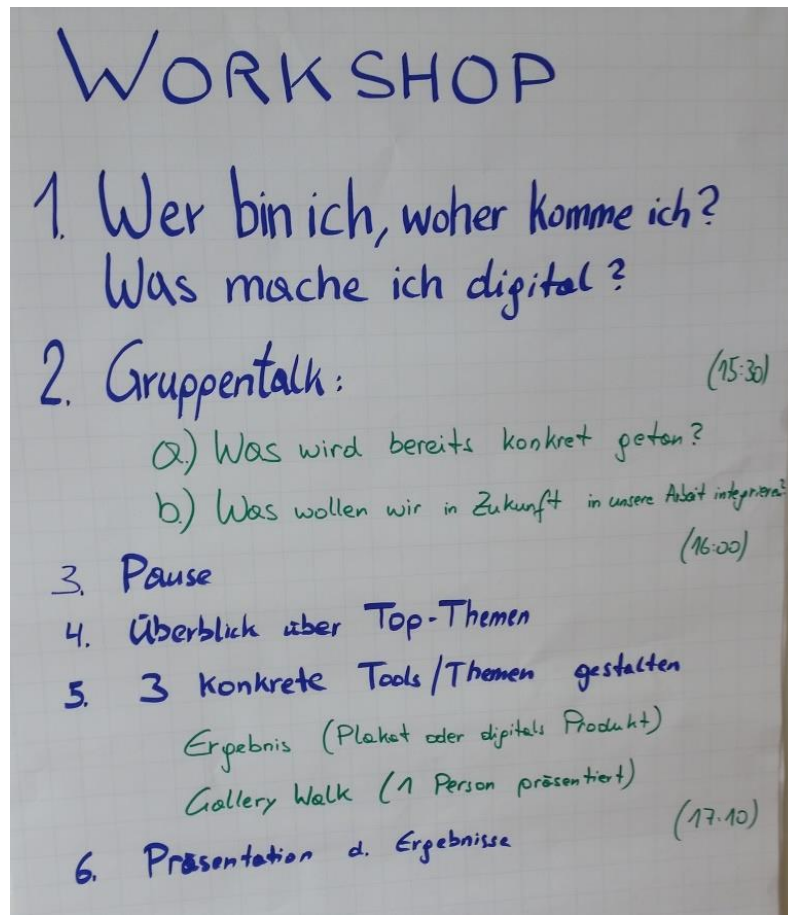 WORKSHOP
1. Wer bin ich, woher komme ich?
Was mache ich digital?
2. Gruppentalk: (15:30)
a.) Was wird bereits konkret getan?
b.) Was wollen wir in Zukunft in unsere Arbeit integrieren?
(16:00)
3. Pause
4. Überblick über Top-Themen
5. 3 konkrete Tools/Themen gestalten
Ergebnis (Plakat oder digitals Produkt)
Gallery Walk (1 Person präsentiert)
(17.10)
6. Präsentation d. Ergebnisse